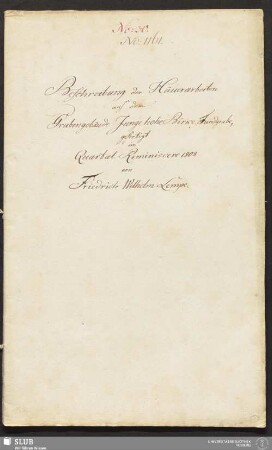 No: 30.
No: 1161.
Beschreibung der Häuerarbeiten
auf dem
Grubengebäude Junge hohe Birke Fundgrube,
gefertigt
im
Quartal Reminiscere 1808
von
Friedrich Wilhelm Lempe.
SLUB